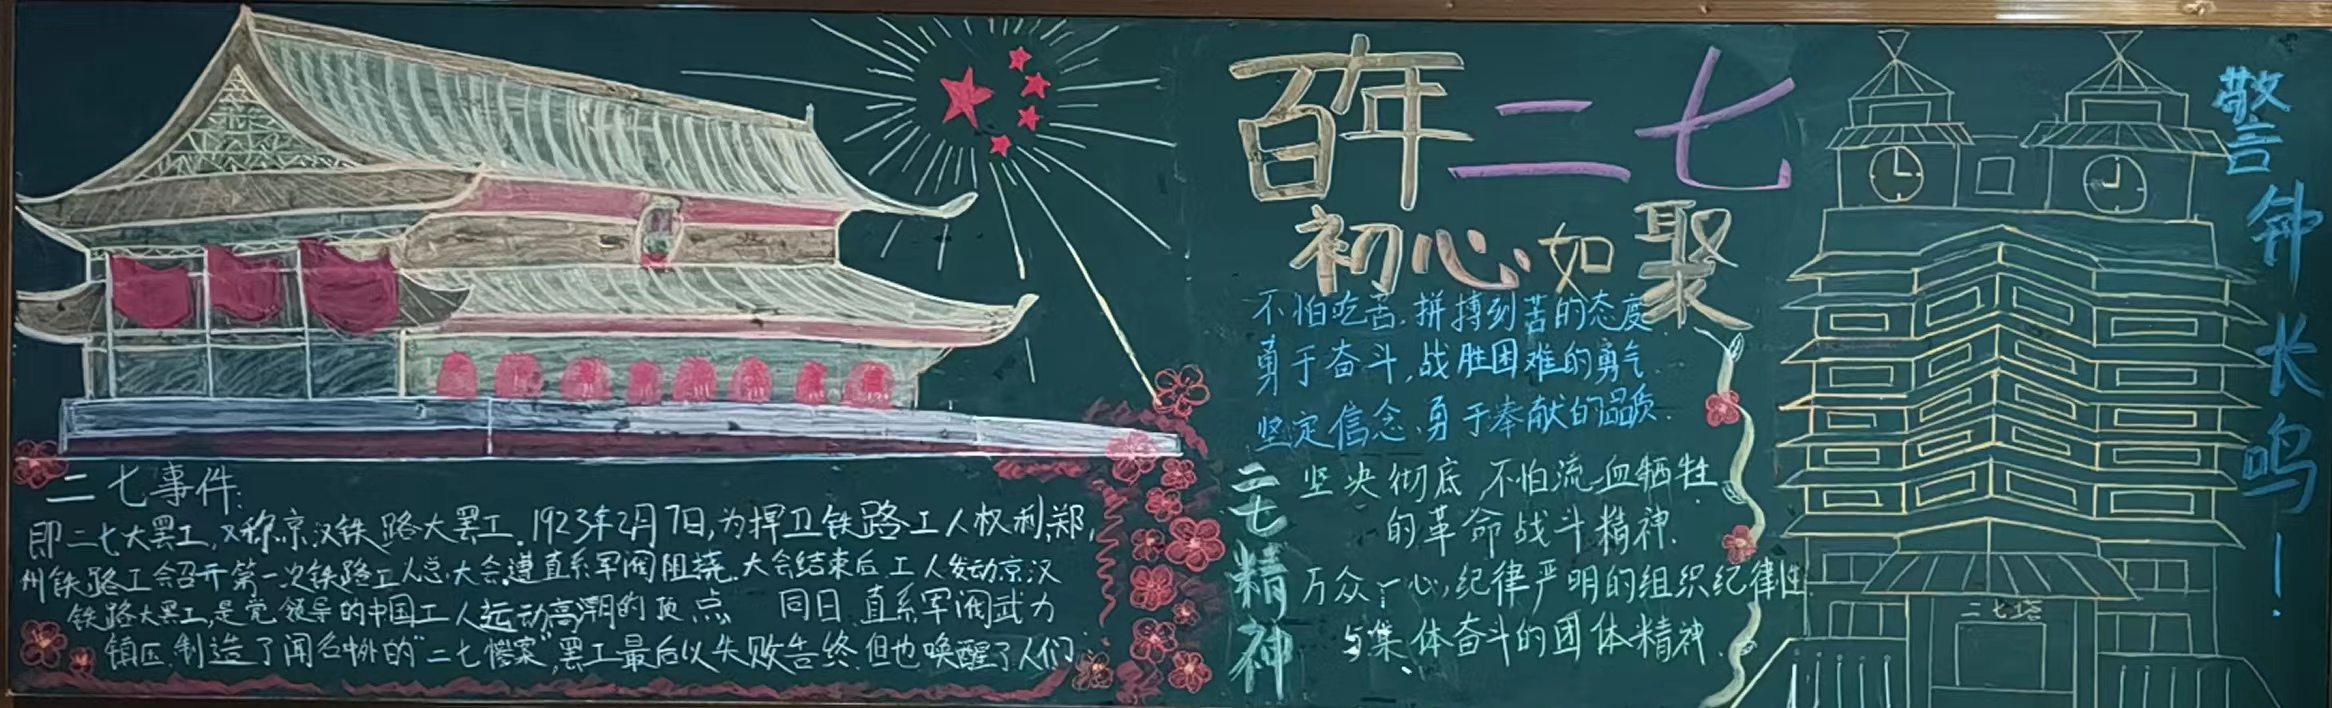 二七事件:
即二七大罢工,又称京汉铁路大罢工.1923年2月7日,为捍卫铁路工人权利,郑,
州铁路工会召开第一次铁路工人总大会,遭直系军阀阻挠.大会结束后工人发动京汉
铁路大罢工,是党领导的中国工人运动高潮的顶点 同日直系军阀武力
镇压,制造了闻名中外的"二七惨案",罢工最后以失败告终.但也唤醒了人们
百年二七
初心如聚
不怕吃苦.拼搏刻苦的态度.
勇于奋斗,战胜困难的勇气...
坚定信念、勇于奉献的品质.
二七精神
坚央彻底 不怕流血牺牲
的革命战斗精神.
万众一心,纪律严明的组织纪律性
与集体奋斗的团体精神.
二七塔
警钟长鸣—.